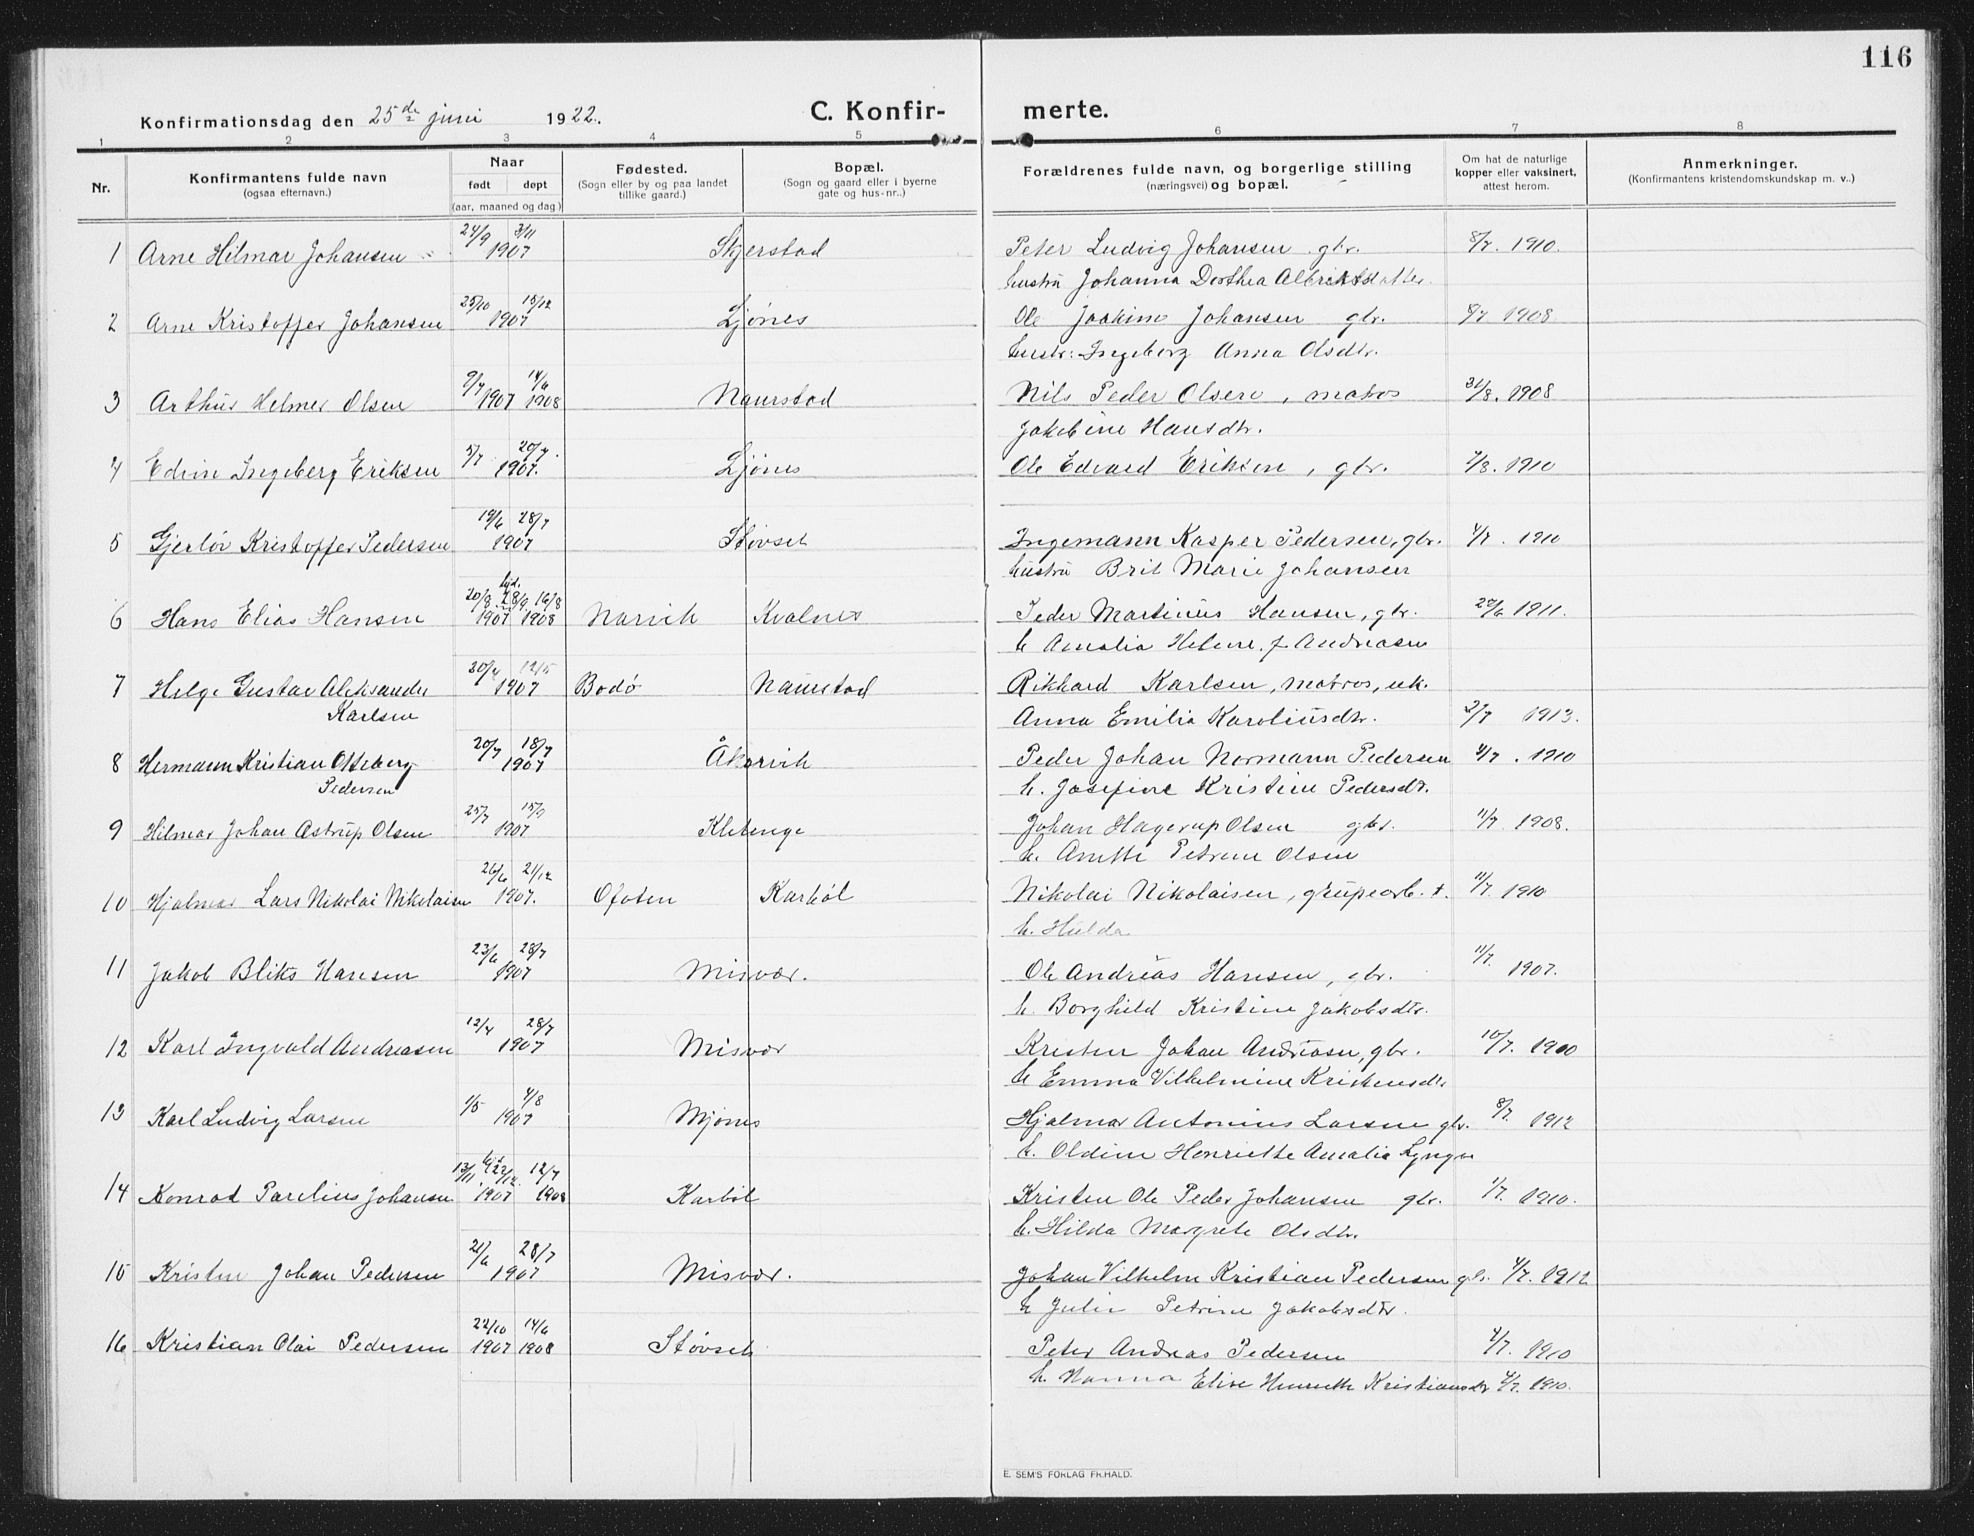 116
Konfirmationsdag den 25de juni 1922. C. Konfir- merte.
1 2 3 4 5 6 7 8
Nr. Konfirmantens fulde navn (ogsaa efternavn.) Naar født døpt (aar, maaned og dag.) Fødested. (Sogn eller by og paa landet tillike gaard.) Bopæl. (Sogn og gaard eller i byerne gate og hus-nr..) Forældrenes fulde navn, og borgerlige stilling (næringsvei) og bopæl. Om hat de naturlige kopper eller vaksinert, attest herom. Anmerkninger. (Konfirmantens kristendomskundskap m. v..)
1 Arne Hilmar Johansen 24/9 3/11 1907 Skjerstad Peter Ludvig Johansen gbr. 8/7. 1910.
hustru Johanna Dorthea Albriktsdatter.
2 Arne Kristoffer Johansen 25/10 15/12 1907 Ljönes Ole Joakim Johansen gbr. 8/7 1908
hustr: Ingeborg Anna Olsdtr.
3 Arthur Helmer Olsen 9/7 1907 14/6 1908 Naurstad Nils Peder Olsen, matros 31/8. 1908
Jakobine Hansdtr.
4 Edvin Ingeberg Eriksen 5/7 20/7. 1907. Ljönes Ole Edvard Eriksen, gbr. 7/8. 1910
5 Gjerlöv Kristoffer Pedersen 19/6 28/7 1907 Støvset Ingemann Kasper Pedersen, gbr. 4/7. 1910
hustru Brit Marie Johansen
6 Hans Elias Hansen 20/8 hjd. 28/9 1907 16/8 1908 Narvik Kvalnes Peder Martinus Hansen, gbr. 22/6 1911.
h Amalia Helene f. Andreasen
7 Helge Gustav Aleksander 20/4 12/5 1907 Bodö Naurstad Rikhard Karlsen, matros, uk.
Karlsen Anna Emilia Karoliusdtr. 2/7 1913.
8 Hermann Kristian Otteberg 20/7 18/7 1907 Åkervik Peder Johan Normann Pedersen 4/7. 1910
Pedersen h. Josefine Kristine Pedersdt.
9 Hilmar Johan Astrup Olsen 25/7 15/9 1907 Kletenge Johan Hagerup Olsen gbr. 11/7 1908.
h. Anette Petrine Olsen
10 Hjalmar Lars Nikolai Nikolaisen 26/6 21/12 1907. Ofoten Karböl Nikolai Nikolaisen, grupearb. 11/7 1910
h. Hulda
11 Jakob Bliks Hansen 23/6 28/7 1907 Misvær. Ole Andreas Hansen, gbr. 11/7. 1907.
h. Borghild Kristine Jakobsdtr.
12 Karl Ingvald Andreasen 12/4 28/7 1907 Misvær Kristen Johan Andreasen, gbr. 10/7. 1910
h Emma Vilhelmine Kristensdtr
13 Karl Ludvig Larsen 1/5 4/8 1907 Mjönes Hjalmar Antonius Larsen gbr. 8/7. 1912
h. Oldine Henriette Amalia Lyngva
14 Konrad Parelius Johansen 13/11 hjd 22/12. 1907 12/7 1908 Karböl Kristen Ole Peder Johansen gbr. 1/7. 1910.
h. Hilda Margrete Olsdtr.
15 Kristen Johan Pedersen 21/6 28/7 1907 Misvær. Johan Vilhelm Kristian Pedersen gbr. 4/7. 1912
h Julie Petrine Jakobsdtr.
16 Kristian Olai Pedersen 22/10 1907 14/6 1908 Støvset Peter Andreas Pedersen 4/7. 1910
h. Hanna Elise Henriette Kristiansdtr 4/7. 1910.
E. SEM'S FORLAG FR.HALD.